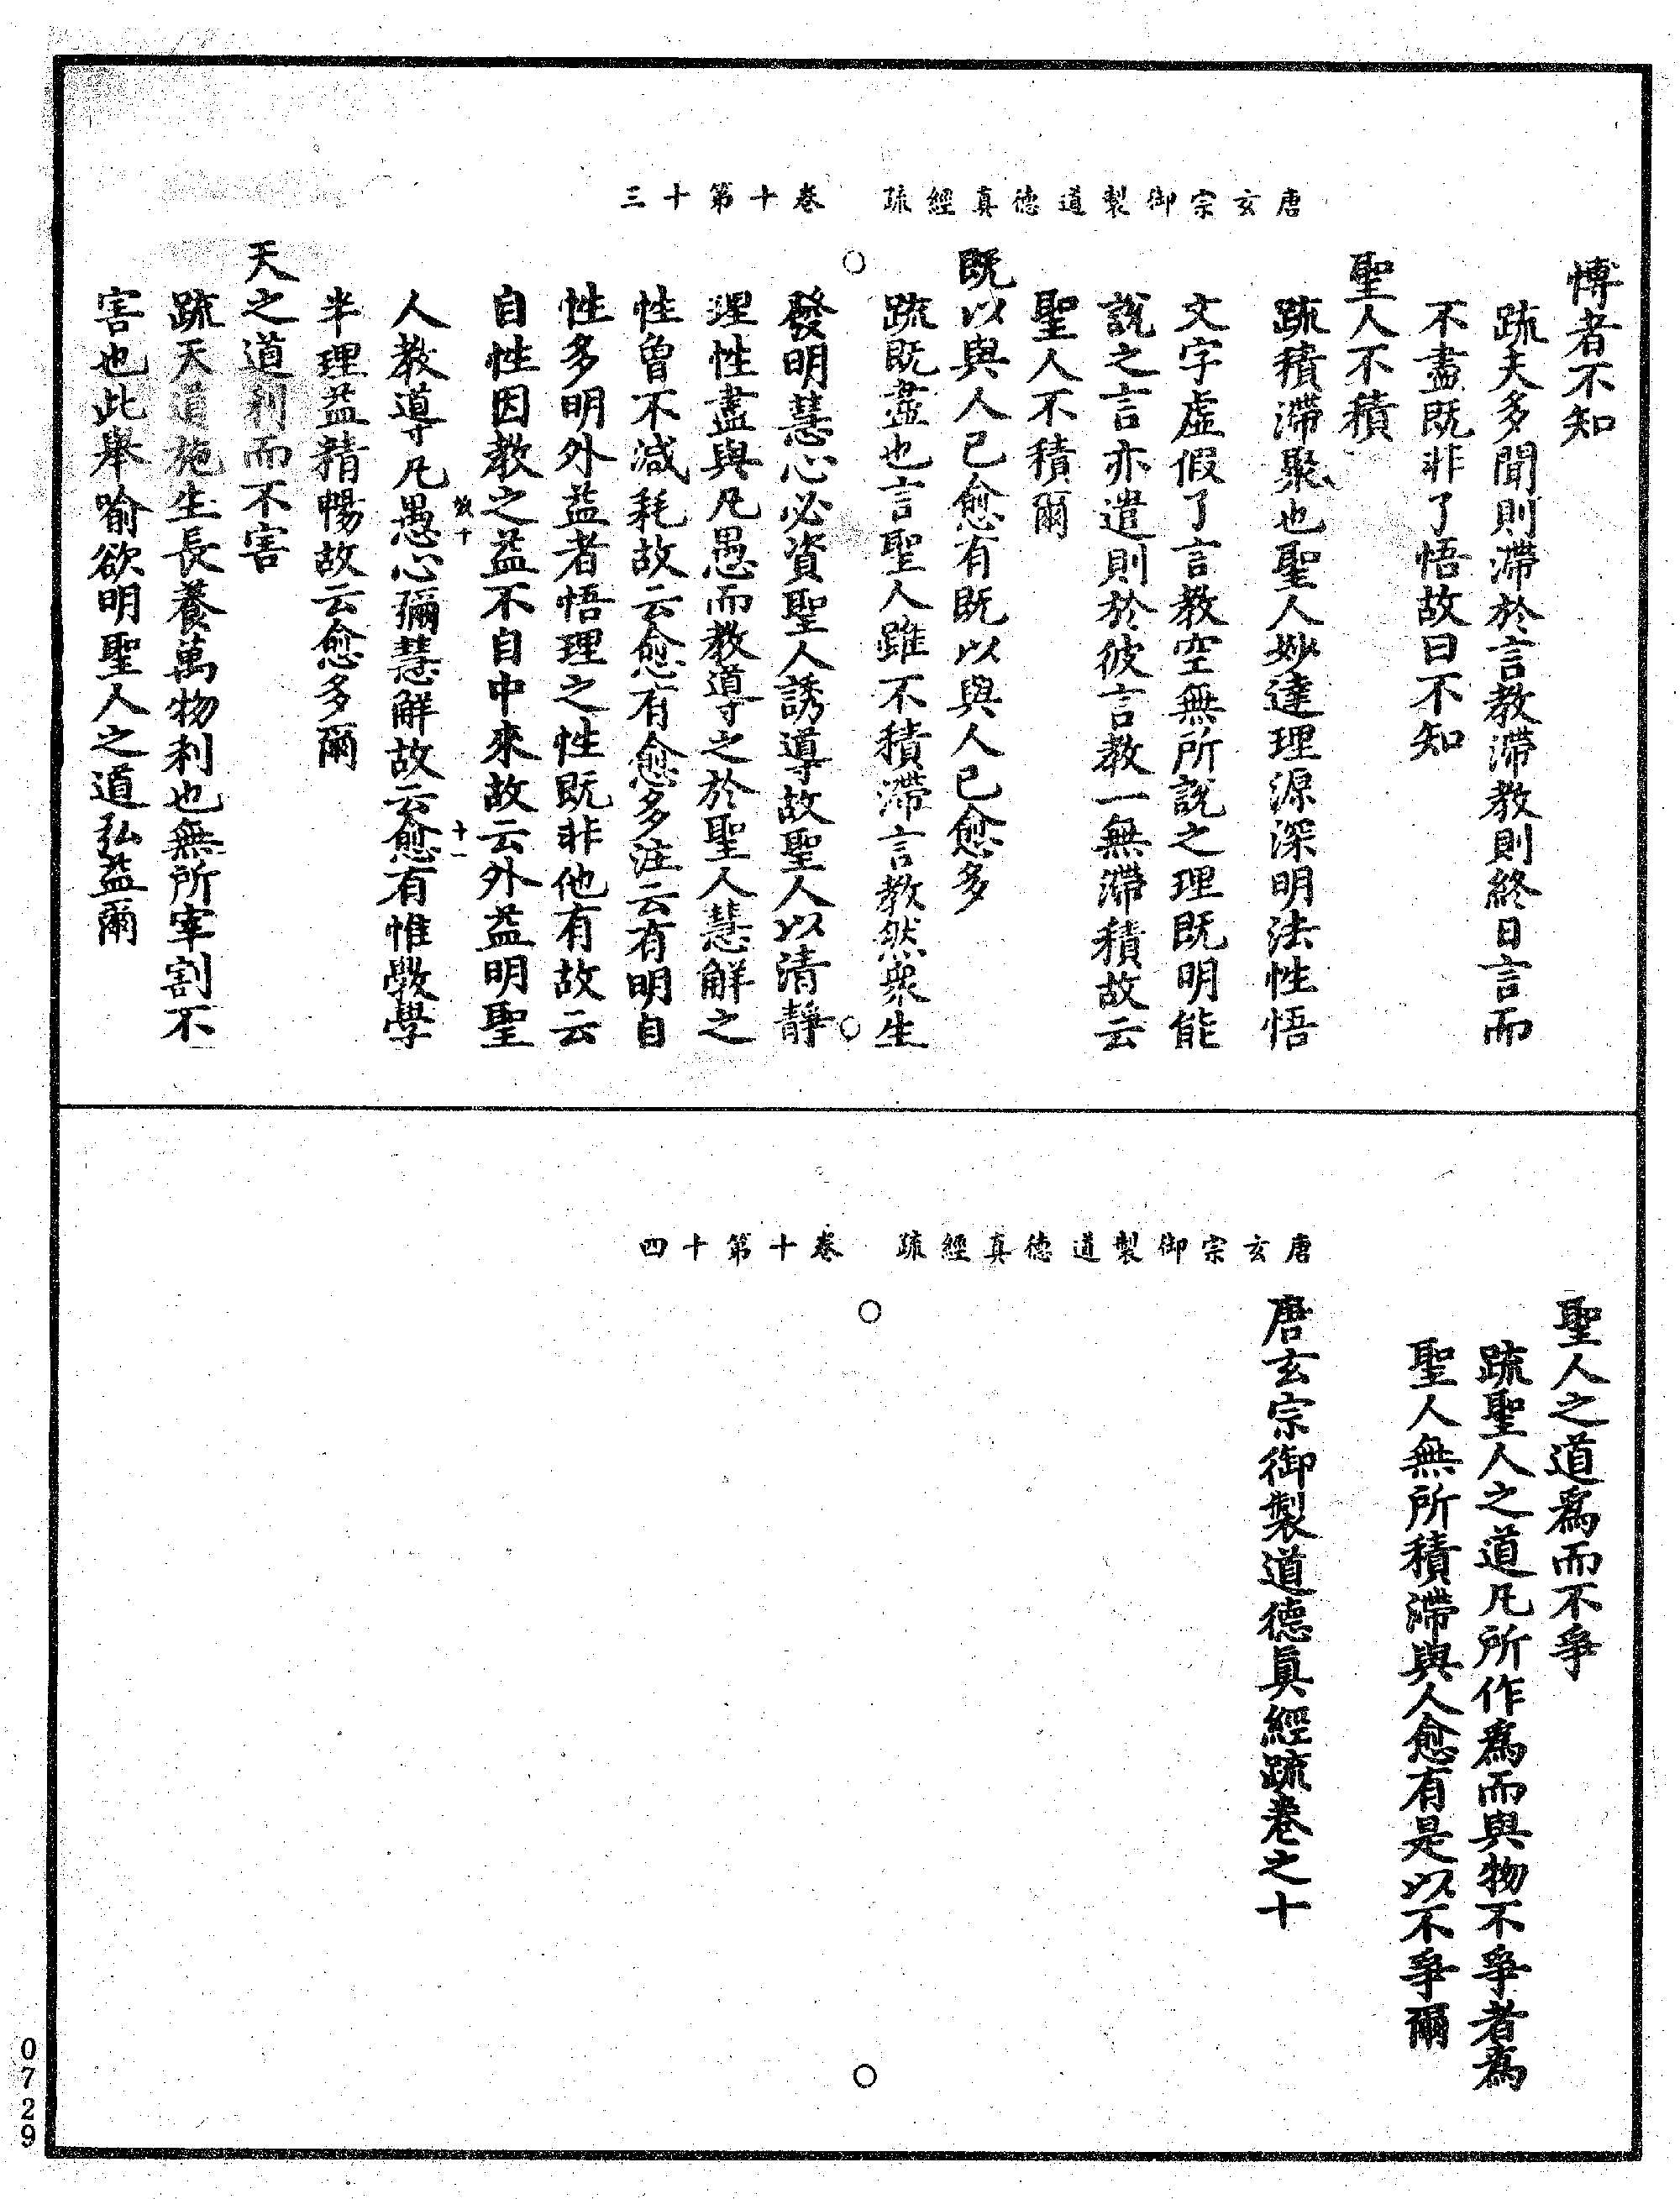 唐玄宗御製道德真經疏　卷十第十三
博者不知
疏夫多聞則滯於言教滯教則終日言而
不盡既非了悟故曰不知
聖人不積
疏積滯聚也聖人妙達理源深明法性悟
文字虛假了言教空無所說之理既明能
說之言亦遣則於彼言教一無滯積故云
聖人不積爾
既以與人已愈有既以與人已愈多
疏既盡也言聖人雖不積滯言教然衆生
發明慧心必資聖人誘導故聖人以清靜
理性盡與凡愚而教導之於聖人慧解之
性曾不減耗故云愈有愈多注云有明自
性多明外益者悟理之性既非他有故云
自性因教之益不自中來故云外益明聖
十一
人教導凡愚心彌慧解故云愈有惟斆學
半理益精暢故云愈多爾
天之道利而不害
疏天道施生長養萬物利也無所宰割不
害也此舉喻欲明聖人之道弘益爾
唐玄宗御製道德真經疏　卷十第十四
聖人之道爲而不爭
疏聖人之道凡所作爲而與物不爭者爲
聖人無所積滯與人愈有是以不爭爾
唐玄宗御製道德眞經疏卷之十
0729